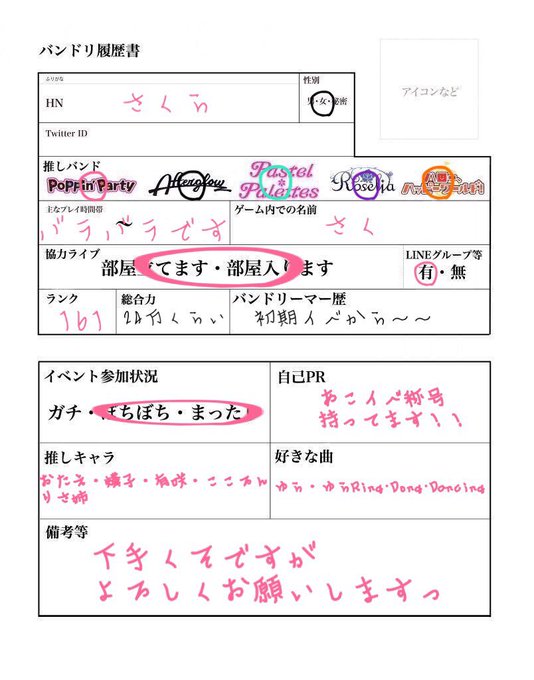 バンドリ履歴書
ふりがな
HN さくら
性別
男・女・秘密
アイコンなど
Twitter ID
推しバンド
Poppin'Party Afterglow Pastel*Palettes Roselia ハロー、ハッピーワールド!
主なプレイ時間帯
バラバラです
~
ゲーム内での名前
さく
協力ライブ
部屋立てます・部屋入ります
LINEグループ等
有・無
ランク
161
総合力
24万くらい
バンドリーマー歴
初期イベから〜〜
イベント参加状況
ガチ・ぼちぼち・まったり
自己PR
あこイベ称号
持ってます!!
推しキャラ
おたえ・蘭子・有咲・こころん
りさ姉
好きな曲
ゆら・ゆらRing-Dong-Dancing
備考等
下手くそですが
よろしくお願いしますっ